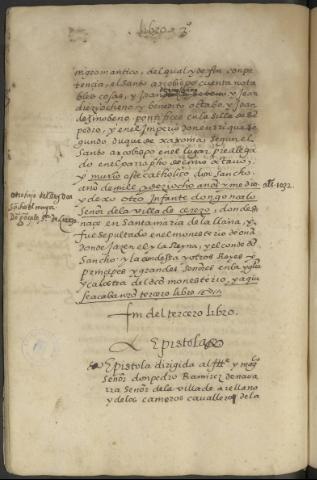 libro 3º
nigromantico, del qual y de su conpe
tencia, el santo arçobispo cuenta nota
bles cosas, y Joan
diez y ocheno y benedito octabo, y Joan
dezinobeno, pontifices en la silla de St
pedro, y en el Imperio don enrrique se
gundo duque de xaxonia; segun el
santo arçobispo en el lugar prealega
do en el parrapho setimo y octauo,
y murio este catholico don sancho
año de mille y diez ocho años y medio
y dexo otro Infante don gonçalo
Señor de la villa de cerezo, donde
nace en Santa maria de la llana, y
fue sepultado en el monesterio de oña
donde jazen el y la Reyna, y el conde don
Sancho y la condessa y otros Reyes
principes y grandes Señores en la yglesia
y calostra del dicho monesterio, y aqui
se acaba nro tercero libro
fin del tercero libro.
Epistola
Epistola dirigida al Ille y mag
Señor don pedro Ramirez de naua
rra Señor de la villa de arellano
y de los cameros cavallero de la